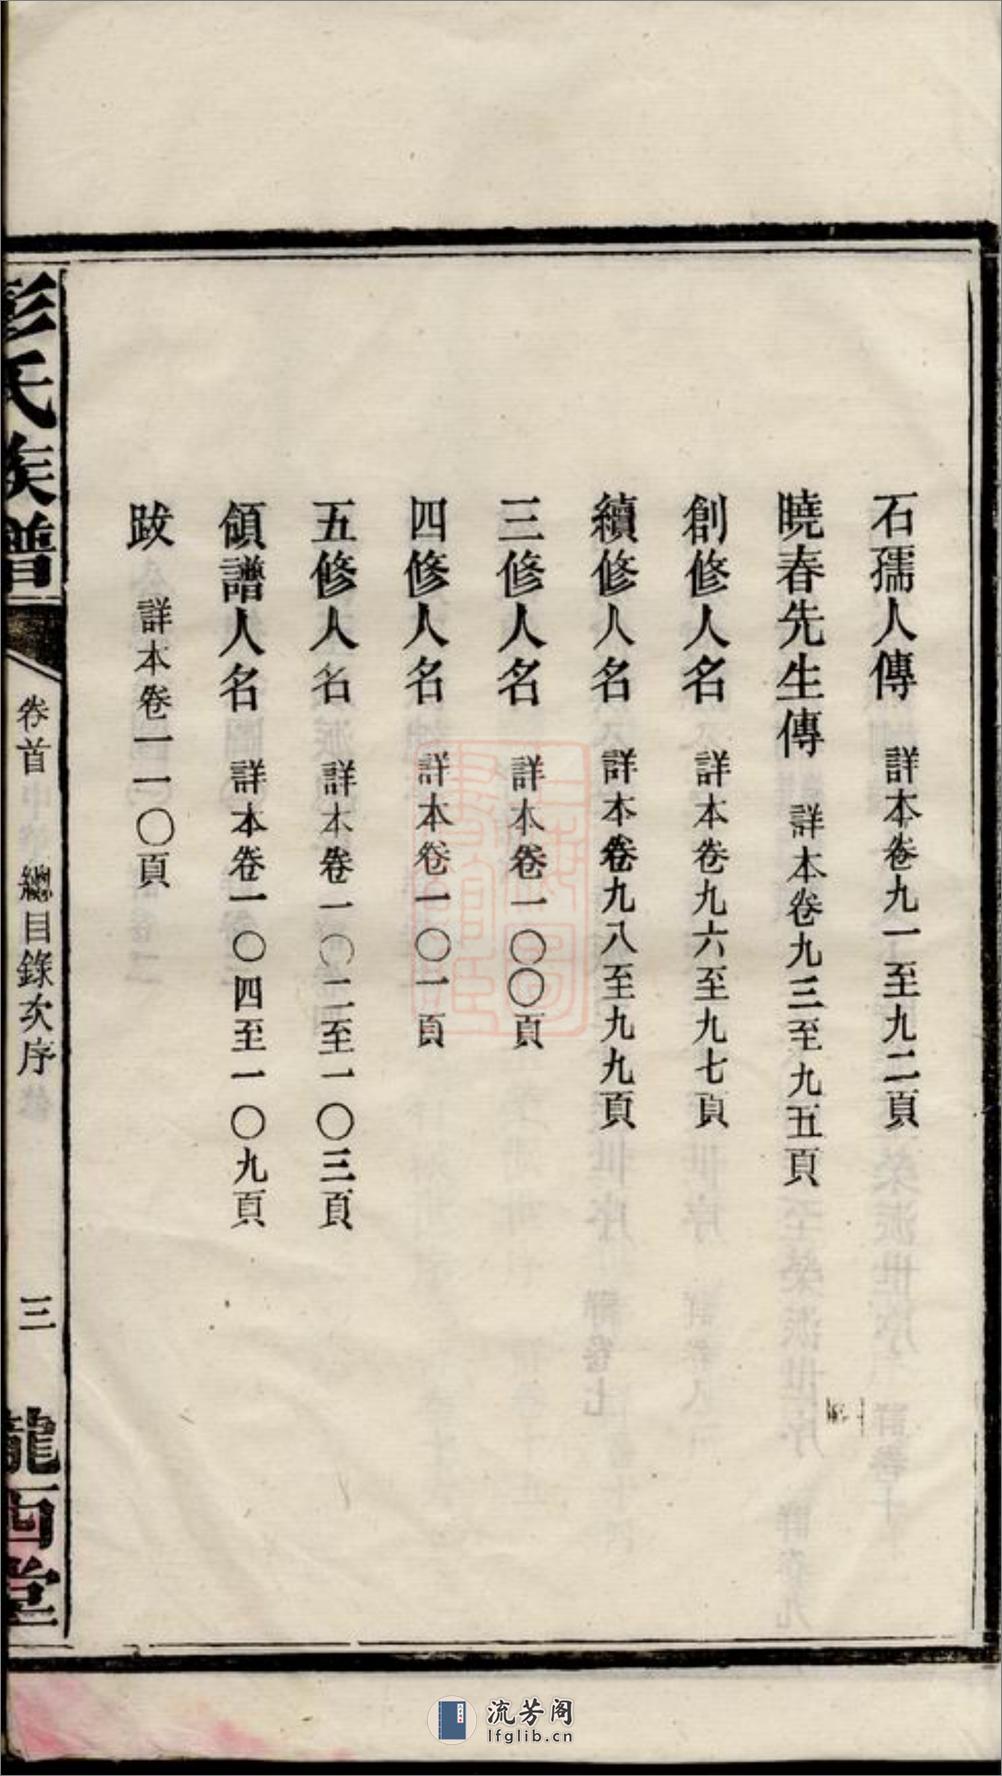 石孺人傳 詳本卷九一至九二頁
曉春先生傳 詳本卷九三至九五頁
創修人名 詳本卷九六至九七頁
續修人名 詳本卷九八至九九頁
三修人名 詳本卷一〇〇頁
四修人名 詳本卷一〇一頁
五修人名 詳本卷一〇二至一〇三頁
領譜人名 詳本卷一〇四至一〇九頁
跋 詳本卷一一〇頁
彭氏族譜 卷首 總目錄次序 三 隴西堂
流芳阁
lfglib.cn